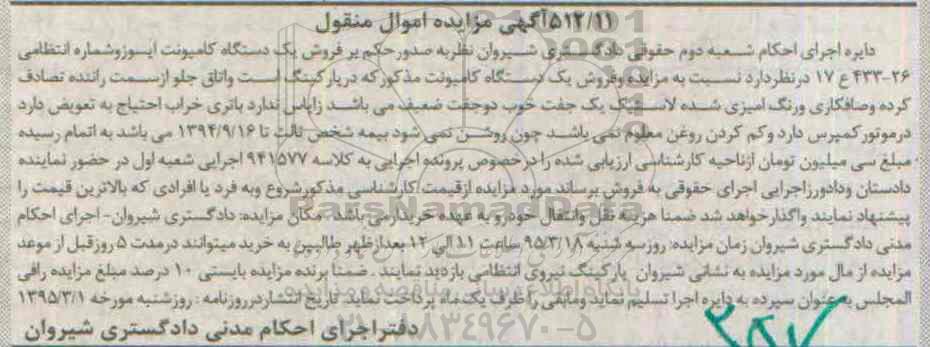 ۵۱۲/۱۱آگهی مزایده اموال منقول
دایره اجرای احکام شعبه دوم حقوقی دادگستری شیروان نظربه صدورحکم بر فروش یک دستگاه کامیونت ایسوزوشماره انتظامی
۲۶-۴۳۳ع ۱۷ درنظردارد نسبت به مزایده وفروش یک دستگاه کامیونت مذکورکه درپارکینگ است واتاق جلو ازسمت راننده تصادف
کرده وصافکاری ورنگ امیزی شده لاستیک یک جفت خوب دوجفت ضعیف می باشد زاپاس ندارد باتری خراب احتیاج به تعویض دارد
درموتورکمپرس دارد وکم کردن روغن معلوم نمی باشد چون روشن نمی شود بیمه شخص ثالث تا ۱۳۹۴/۹/۱۶ می باشد به اتمام رسیده
مبلغ سی میلیون تومان ازناحیه کارشناسی ارزیابی شده را درخصوص پرونده اجرایی به کلاسه ۹۴۱۵۷۷ اجرایی شعبه اول در حضور نماینده
دادستان ودادورزاجرایی اجرای حقوقی به فروش برساند مورد مزایده ازقیمت کارشناسی مذکورشروع وبه فرد یا افرادی که بالاترین قیمت را
پیشنهاد نمایند واگذارخواهد شد ضمنا هزینه نقل وانتقال خودرو به عهده خریدارمی باشد . مکان مزایده: دادگستری شیروان- اجرای احکام
مدنی دادگستری شیروان زمان مزایده: روزسه شنبه ۹۵/۳/۱۸ ساعت ۱۱ الی ۱۲ بعدازظهر طالبین به خرید میتوانند درمدت ۵ روزقبل از موعد
مزایده از مال مورد مزایده به نشانی شیروان پارکینگ نیروی انتظامی بازدید نمایند . ضمنا برنده مزایده بایستی ۱۰ درصد مبلغ مزایده رافی
المجلس به عنوان سپرده به دایره اجرا تسلیم نماید ومابقی را ظرف یک ماه پرداخت نماید. تاریخ انتشاردرروزنامه : روزشنبه مورخه ۱۳۹۵/۳/۱
دفتراجرای احکام مدنی دادگستری شیروان
ParsNamadData
پایگاه اطلاع رسانی مناقصه و مزایده
۰۲۱-۸۸۳۴۹۶۷۰-۵